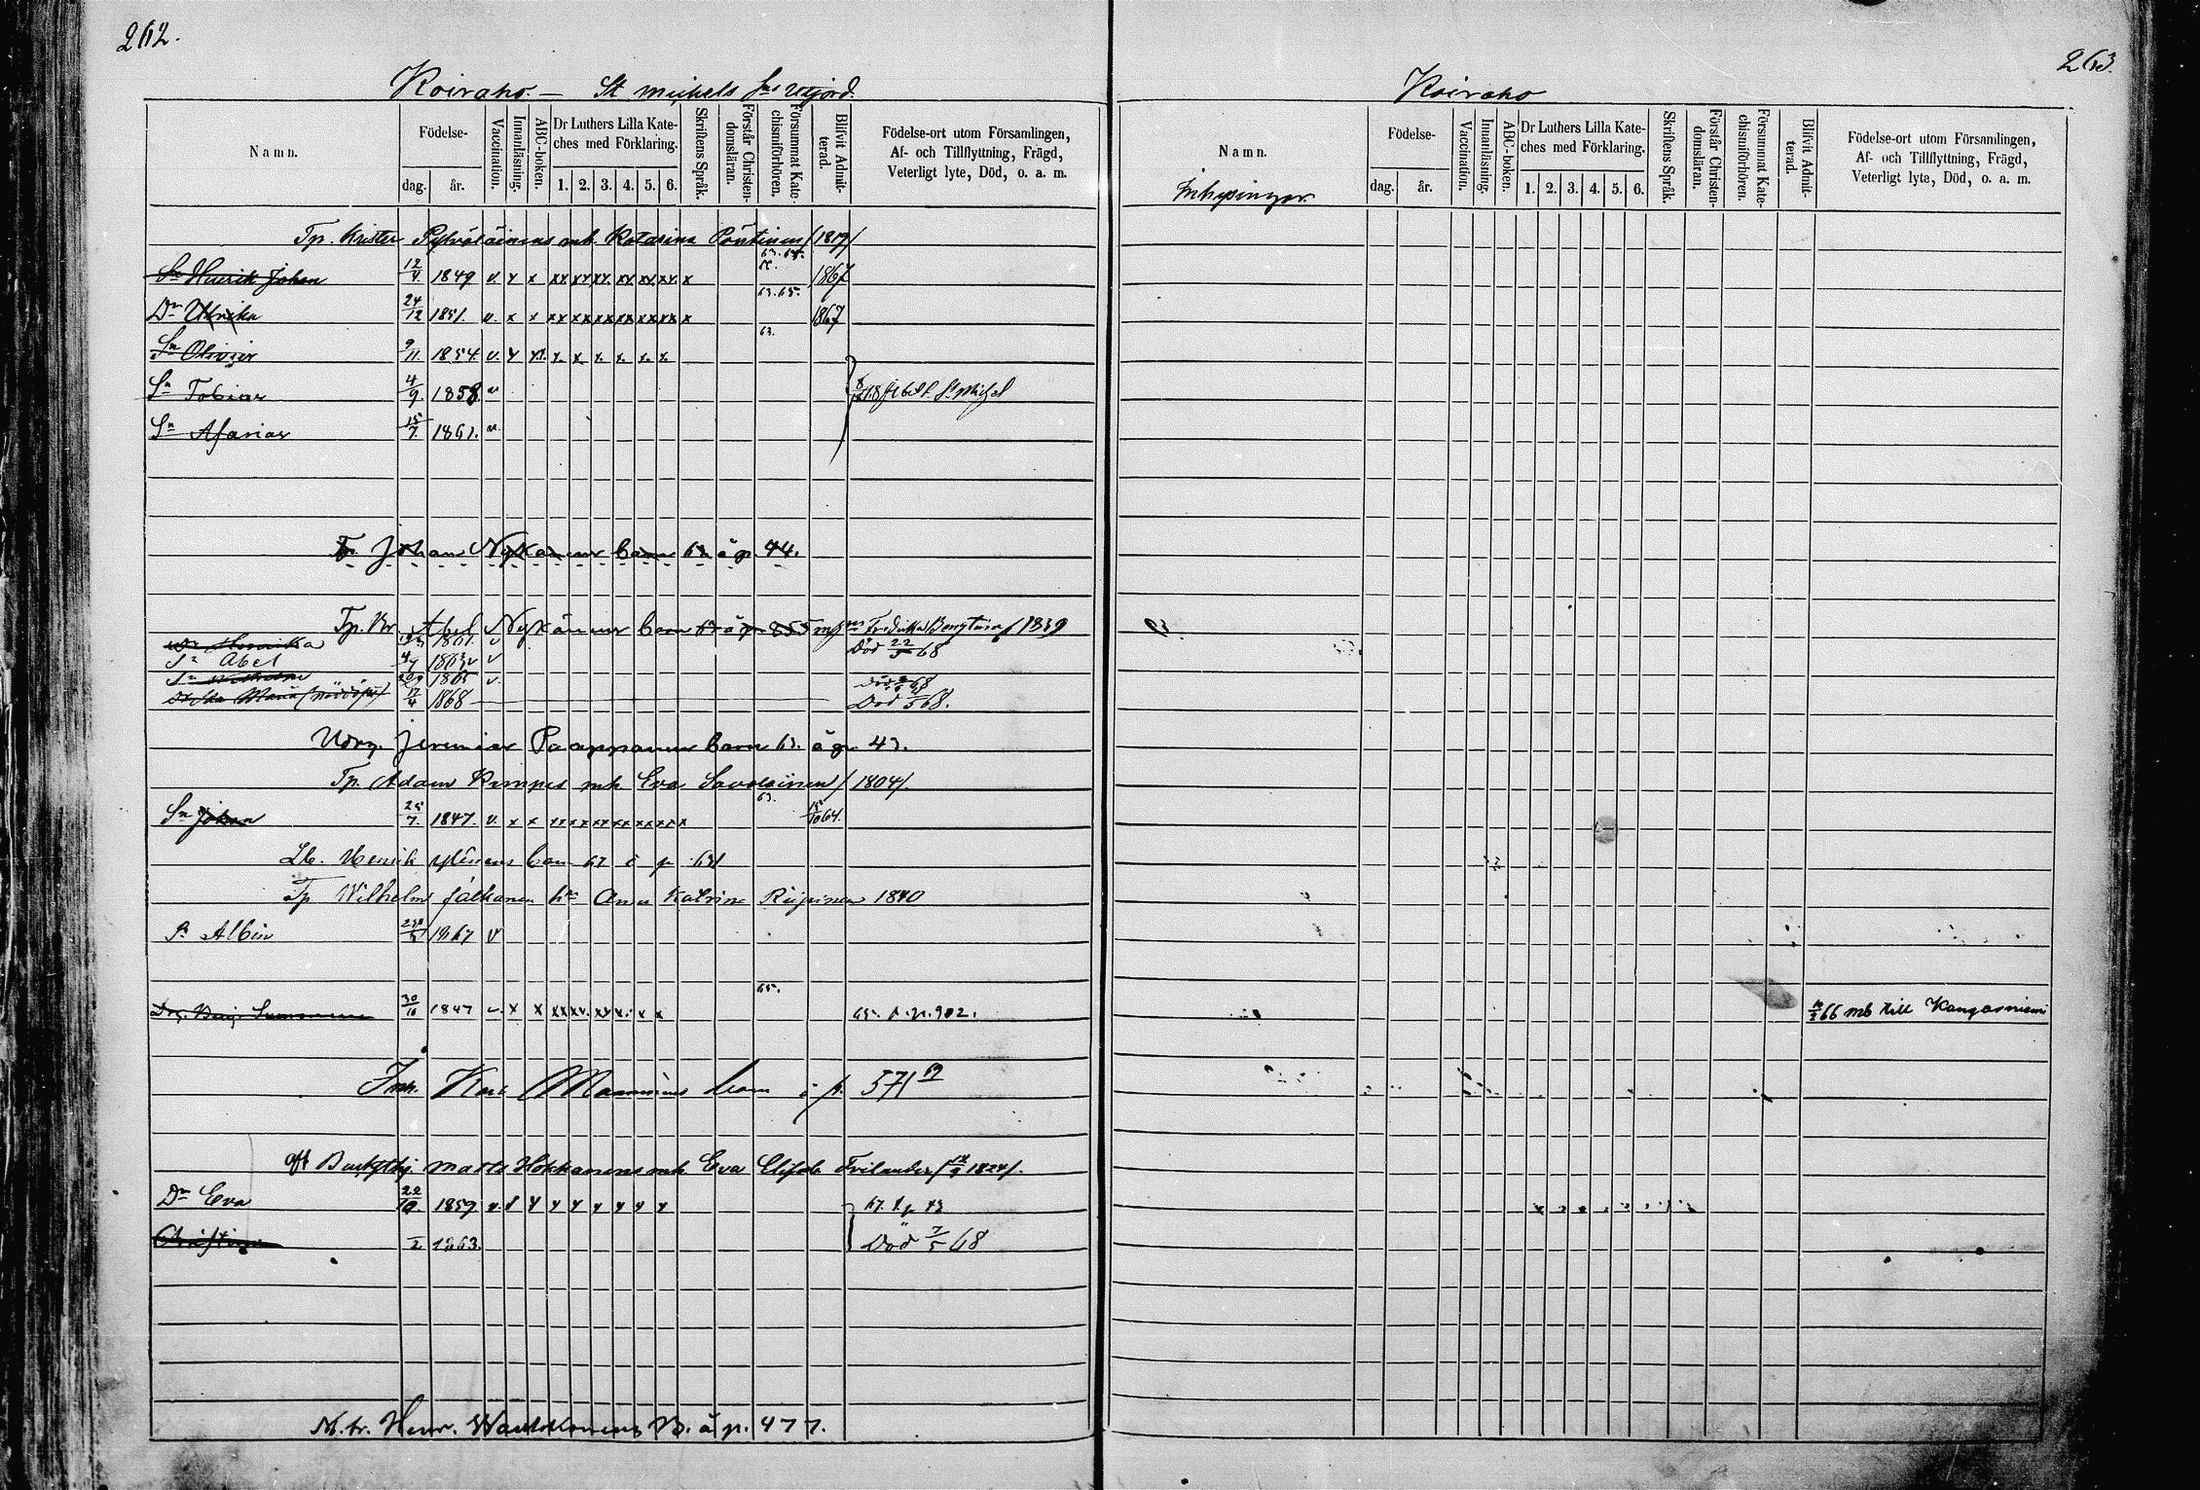 262.
Koiraho. — St michels utjord.
Namn.
Födelse-
dag.
år.
Vaccination.
Innanläsning.
ABC-boken.
Dr Luthers Lilla Kate-
ches med Förklaring.
1. 2. 3. 4. 5. 6.
Skriftens Språk.
Förstår Christen-
domsläran.
Försummat Kate-
chismiförhören.
Blifvit Admit-
terad.
Födelse-ort utom Församlingen,
Af- och Tillflyttning, Frägd,
Veterligt lyte, Död, o. a. m.
Tp. Krister Pylvöläinens mh. Katarina Pöntinen /1819/
Sn Henrik Johan 12/4 1849 v. x x xx xx xx xx xx xx x 1867
63. 65.
Dr Ulrika 24/12 1851. v. x x xx xx xx xx xx xx x 1867
63.
Sn Olivier 9/11 1854 v. x xx x. x x. x. x. x
Sn Tobias 4/9. 1858. v
Sn Asarias 15/7. 1861. v
Tp. Johan Nykänens barn 62 å p. 44.
Tp. Abel Nykänens barn 67 å p. 855 Fredrika Bengtson /1839
1861. v Död 22/5 68
Sn Abel 4/7 1863 v
1865 v.
Maria 17/4 1868 Död 68.
Jeremias Paappanens barn 63. å p. 43.
Tp. Adam Kimpes mh Eva Savolainen /1804/.
63.
Sn Johan 25/7. 1847. v. x x xx xx xx xx xx xx x 15/10 64.
Henrik barn 67 å p 631
Tp Wilhelm Jalkanen hu Anna Katrina Riipinen 1840
Sn Albin 1867 v
65.
30/10 1847 v. x x xx xx. xx x. x x 65. f. p. 902.
Inh. Karl Maaninens barn å p. 571
Matts Hokkanens mh Eva Elisab Frilander 1824/.
Dr Eva 22/10. 1859 v. x x x x x x x x 67. f p 43
Christina /2. 1863. Död 7/5 68
Henr. B. å p. 477.
263.
Koiraho
Namn.
Inhysingar.
Födelse-
dag.
år.
Vaccination.
Innanläsning.
ABC-boken.
Dr Luthers Lilla Kate-
ches med Förklaring.
1. 2. 3. 4. 5. 6.
Skriftens Språk.
Förstår Christen-
domsläran.
Försummat Kate-
chismiförhören.
Blifvit Admit-
terad.
Födelse-ort utom Församlingen,
Af- och Tillflyttning, Frägd,
Veterligt lyte, Död, o. a. m.
66 mb till Kangasniemi